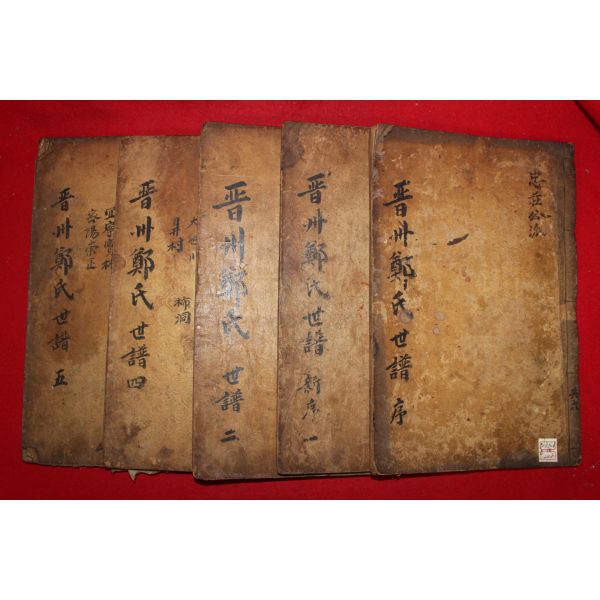 忠莊公派
晋州鄭氏世譜 序
晋州鄭氏世譜 新序 一
晋州鄭氏 世譜 二
井村
柿洞
晋州鄭氏世譜 四
晋州鄭氏世譜 五